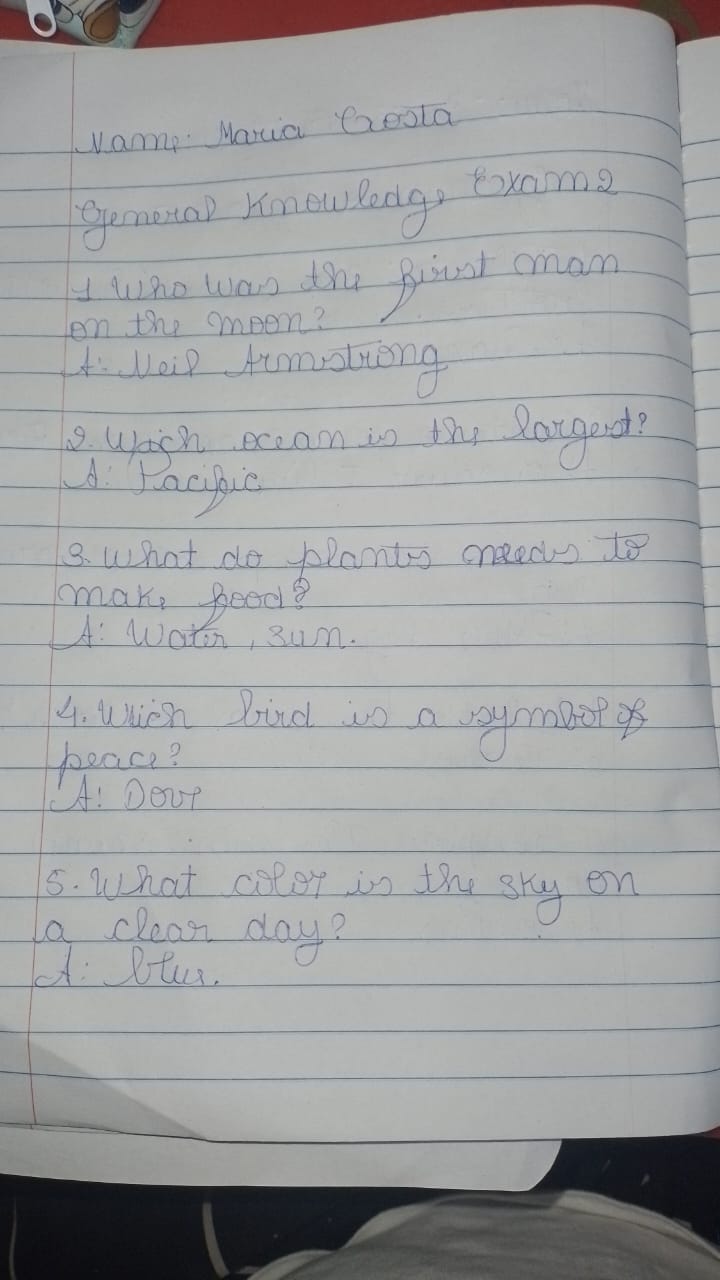 Name: Maria Costa
General Knowledge Exam 2
1 Who was the first man
on the moon?
A: Neil Armstrong
2. Which ocean is the largest?
A: Pacific
3. What do plants needs to
make food?
A: Water, sun.
4. Which bird is a symbol of
peace?
A: Dove
5. What color is the sky on
a clear day?
A: blue.